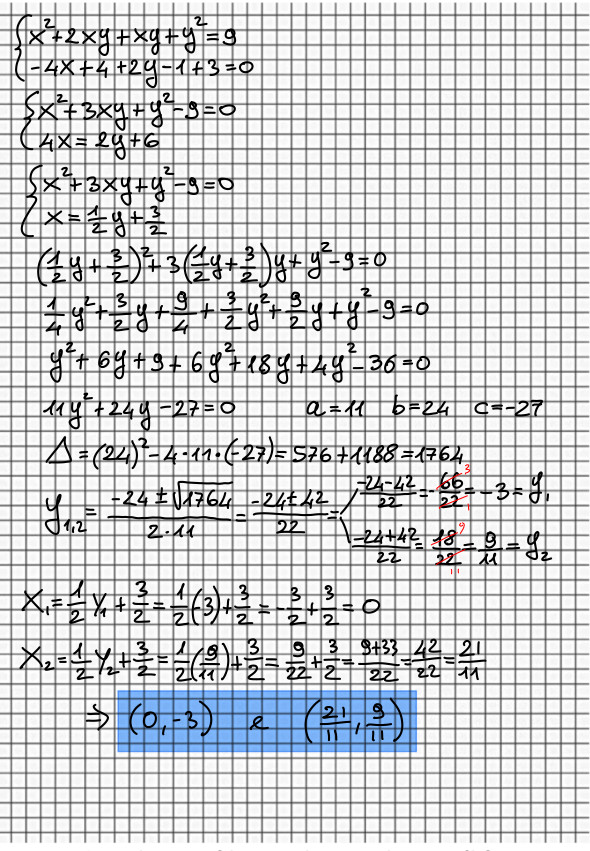 { x²+2xy+xy+y²=9
-4x+4+2y-1+3=0
{ x²+3xy+y²-9=0
4x=2y+6
{ x²+3xy+y²-9=0
x=1/2 y+3/2
(1/2 y+3/2)²+3(1/2 y+3/2)y+y²-9=0
1/4 y²+3/2 y+9/4+3/2 y²+9/2 y+y²-9=0
y²+6y+9+6y²+18y+4y²-36=0
11y²+24y-27=0 a=11 b=24 c=-27
Δ=(24)²-4·11·(-27)=576+1188=1764
y₁,₂= (-24±√1764)/(2·11) = (-24±42)/22 =
(-24-42)/22=-66/22=-3=y₁ 3 1
(-24+42)/22=18/22=9/11=y₂ 9 11
X₁=1/2 y₁+3/2=1/2(-3)+3/2=-3/2+3/2=0
X₂=1/2 y₂+3/2=1/2(9/11)+3/2=9/22+3/2=(9+33)/22=42/22=21/11
⇒ (0,-3) e (21/11,9/11)